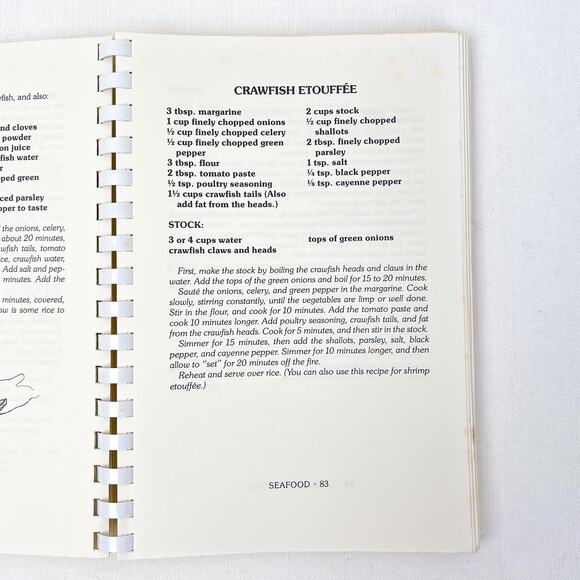 wfish, and also:
nd cloves
powder
on juice
fish water
r
pped green
ced parsley
pper to taste
the onions, celery,
about 20 minutes,
wfish tails, tomato
ice, crawfish water,
Add salt and pep-
minutes. Add the
minutes, covered,
ow is some rice to
CRAWFISH ETOUFFÉE
3 tbsp. margarine
1 cup finely chopped onions
½ cup finely chopped celery
½ cup finely chopped green
pepper
3 tbsp. flour
2 tbsp. tomato paste
½ tsp. poultry seasoning
1½ cups crawfish tails (Also
add fat from the heads.)
2 cups stock
½ cup finely chopped
shallots
2 tbsp. finely chopped
parsley
1 tsp. salt
¼ tsp. black pepper
⅛ tsp. cayenne pepper
STOCK:
3 or 4 cups water
crawfish claws and heads
tops of green onions
First, make the stock by boiling the crawfish heads and claws in the
water. Add the tops of the green onions and boil for 15 to 20 minutes.
Sauté the onions, celery, and green pepper in the margarine. Cook
slowly, stirring constantly, until the vegetables are limp or well done.
Stir in the flour, and cook for 10 minutes. Add the tomato paste and
cook 10 minutes longer. Add poultry seasoning, crawfish tails, and fat
from the crawfish heads. Cook for 5 minutes, and then stir in the stock.
Simmer for 15 minutes, then add the shallots, parsley, salt, black
pepper, and cayenne pepper. Simmer for 10 minutes longer, and then
allow to “set” for 20 minutes off the fire.
Reheat and serve over rice. (You can also use this recipe for shrimp
etouffée.)
SEAFOOD · 83